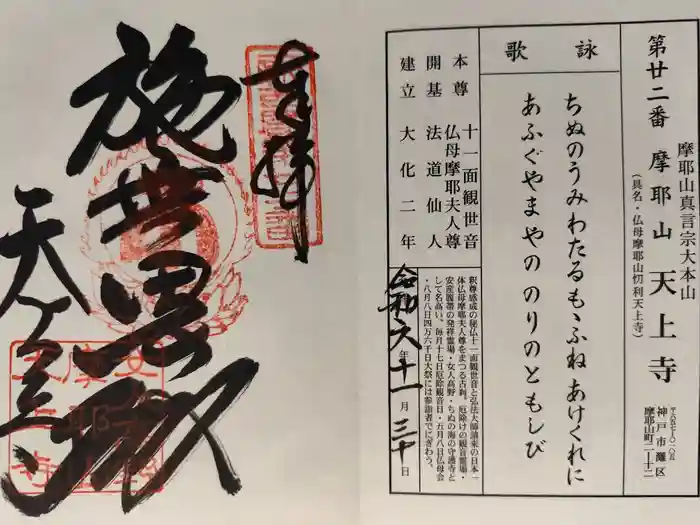 摩耶山真言宗大本山
第廿二番 摩耶山 天上寺
(具名・仏母摩耶山忉利天上寺)
〒六五七-〇一〇五
神戸市灘区
摩耶山町二-十二
詠歌
ちぬのうみわたるもゝふねあけくれに
あふぐやまやののりのともしび
本尊 十一面観世音
仏母摩耶夫人尊
開基 法道仙人
建立 大化二年
釈尊感成の秘仏十一面観世音と弘法大師請来の日本一
体仏母摩耶夫人尊をまつる古刹。厄除けの観音霊場・
安産腹帯の発祥霊場・女人高野・ちぬの海の守護寺と
して名高い。毎月十七日厄除観音日・五月八日仏母会
・八月八日四万六千日大祭には参詣者でにぎわう。
令和六年十一月三十日
奉拝
施世異
天上寺
摩耶山